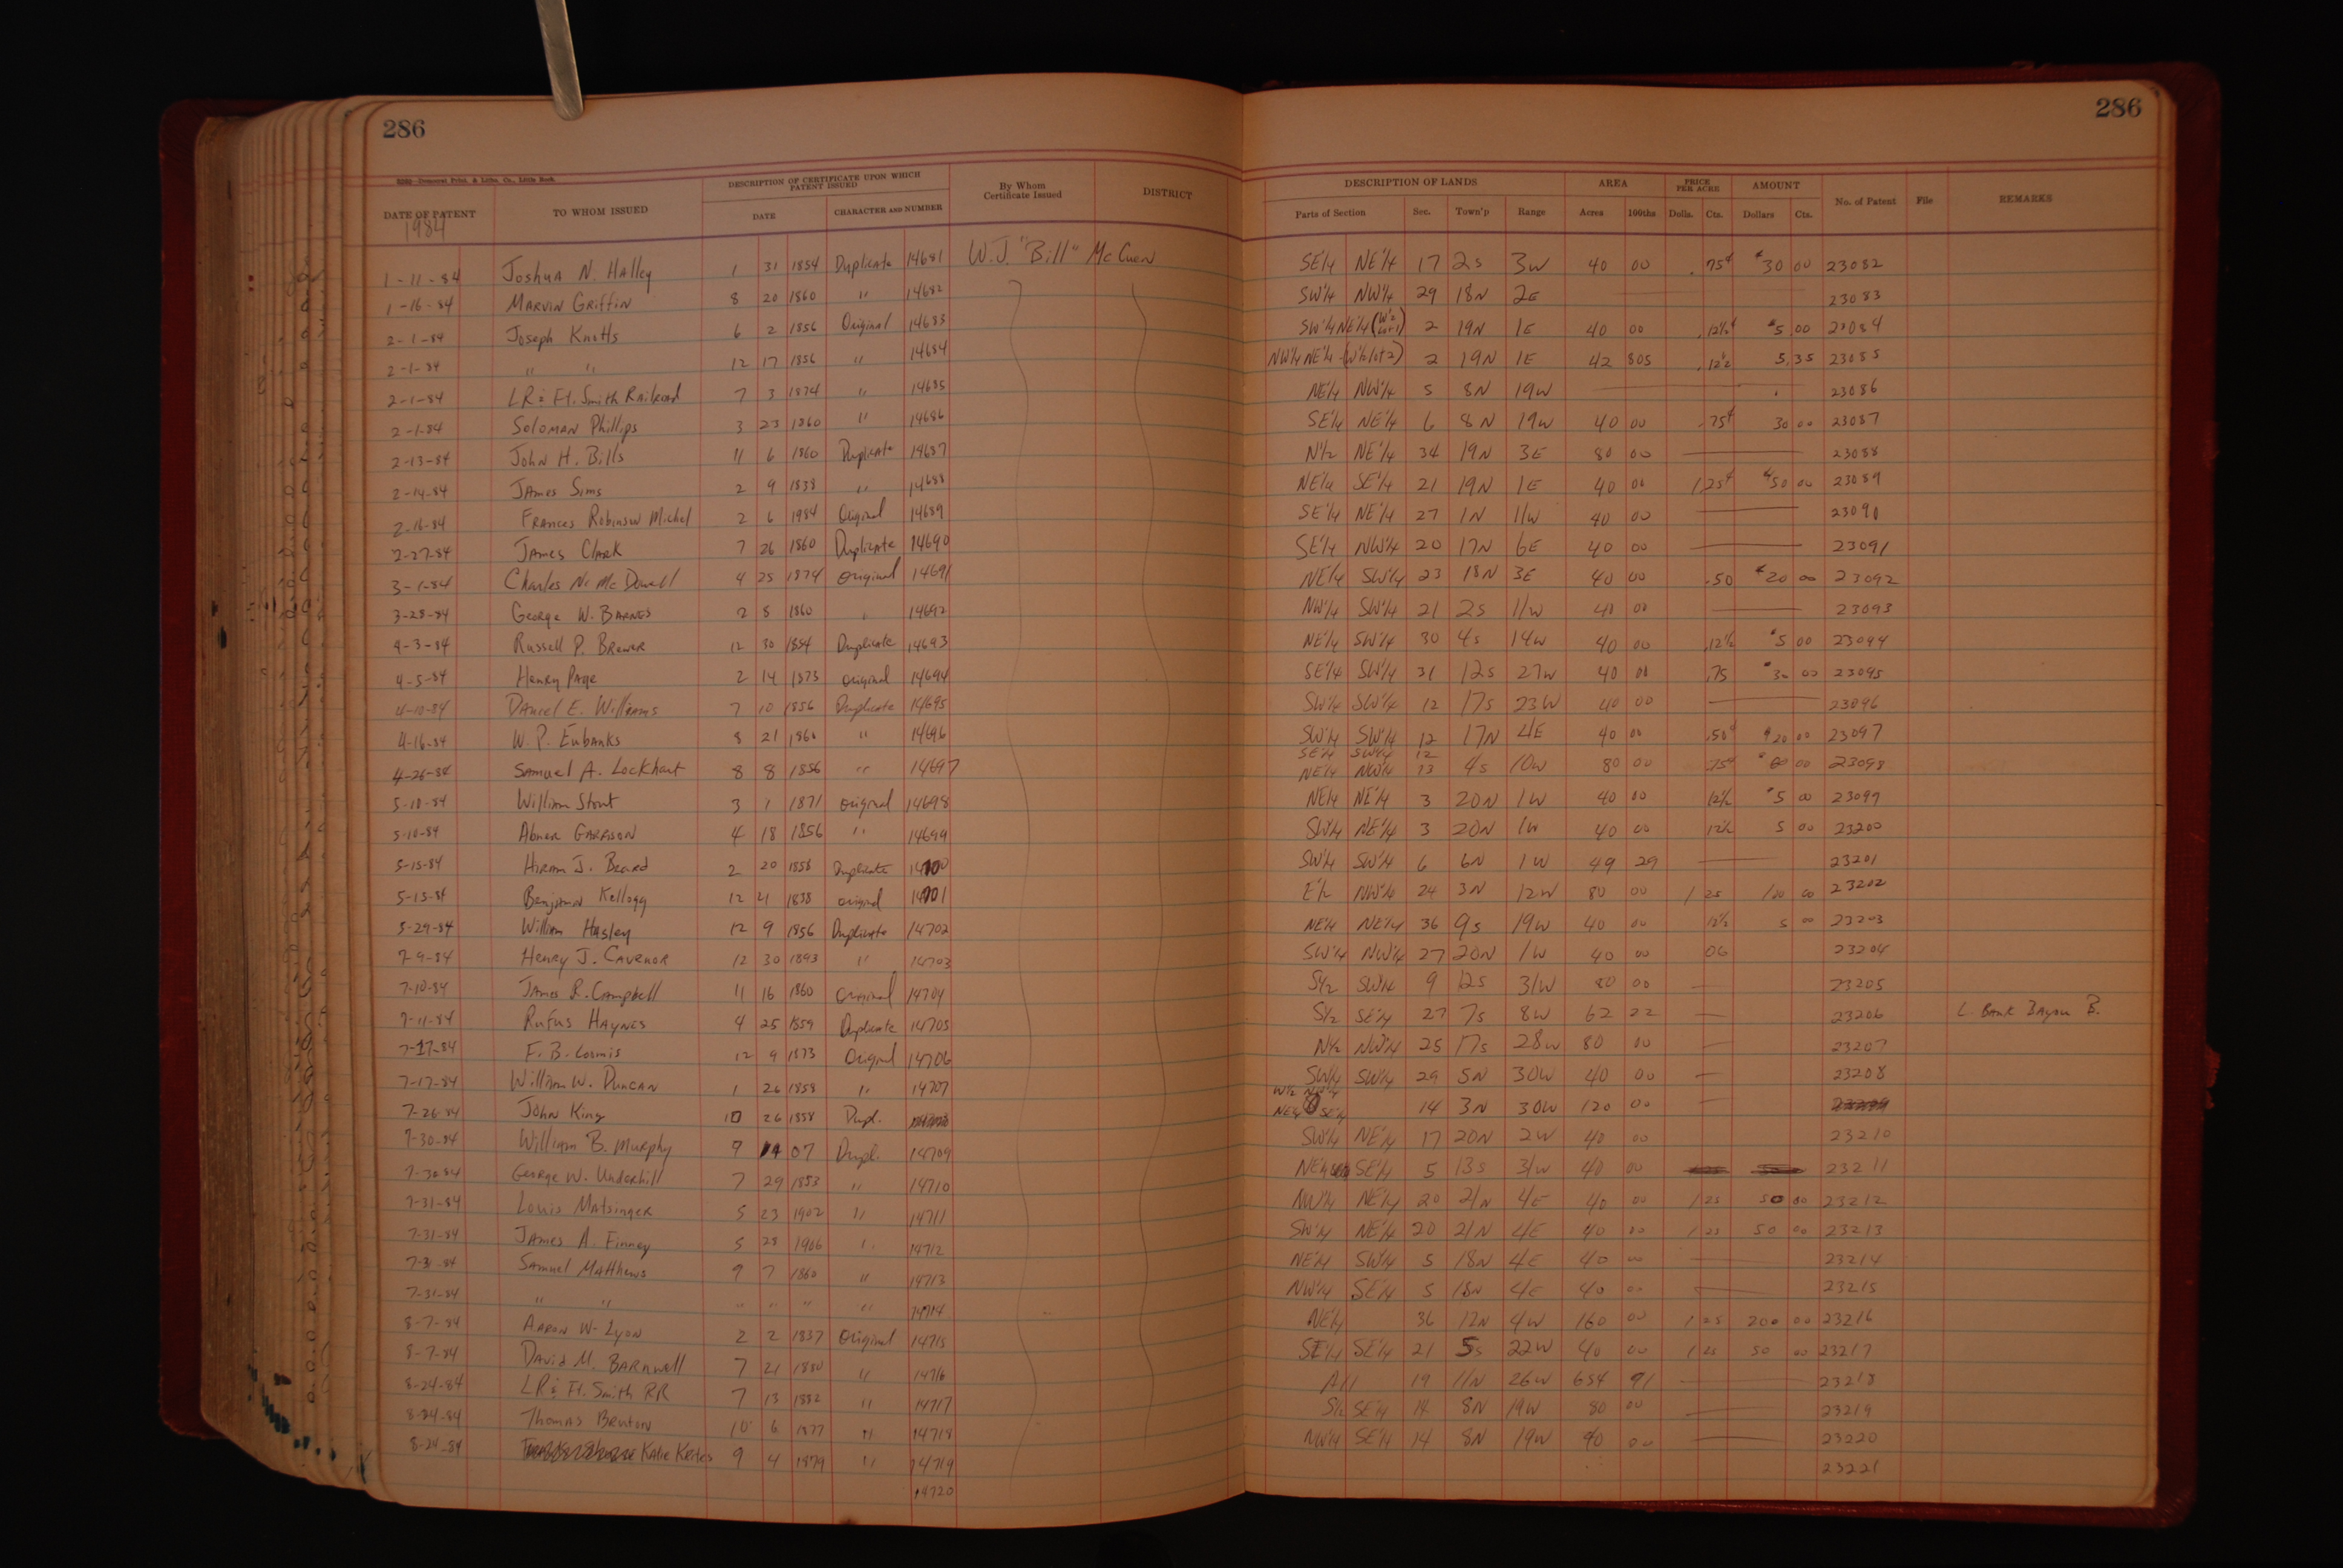 286
286
DATE OF PATENT TO WHOM ISSUED DESCRIPTION OF CERTIFICATE UPON WHICH PATENT ISSUED DATE CHARACTER AND NUMBER By Whom Certificate Issued DISTRICT DESCRIPTION OF LANDS Parts of Section Sec. Town'p Range AREA Acres 100ths PRICE PER ACRE Dolls. Cts. AMOUNT Dollars Cts. No. of Patent File REMARKS
1984
1-11-84 Joshua N. Halley 1 31 1854 Duplicate 14681 W.J. "Bill" McCuen SE1/4 NE1/4 17 2S 3W 40 00 .75¢ $30 00 23082
1-16-84 Marvin Griffin 8 20 1860 " 14682 SW1/4 NW1/4 29 18N 2E 23083
2-1-84 Joseph Knotts 6 2 1856 Original 14683 SW1/4 NE1/4 (W1/2 Lot 1) 2 19N 1E 40 00 .12½¢ $5 00 23084
2-1-84 " " 12 17 1856 " 14684 NW1/4 NE1/4 (W1/2 lot 2) 2 19N 1E 42 805 .12½ 5.35 23085
2-1-84 LR & Ft. Smith Railroad 7 3 1874 " 14685 NE1/4 NW1/4 5 8N 19W 23086
2-1-84 Soloman Phillips 3 23 1860 " 14686 SE1/4 NE1/4 6 8N 19W 40 00 .75¢ 30 00 23087
2-13-84 John H. Bills 11 6 1860 Duplicate 14687 N1/2 NE1/4 34 19N 3E 80 00 23088
2-14-84 James Sims 2 9 1838 " 14688 NE1/4 SE1/4 21 19N 1E 40 00 1.25¢ $50 00 23089
2-16-84 Frances Robinson Michel 2 6 1984 Original 14689 SE1/4 NE1/4 27 1N 11W 40 00 23090
2-27-84 James Clark 7 26 1860 Duplicate 14690 SE1/4 NW1/4 20 17N 6E 40 00 23091
3-1-84 Charles N. McDowell 4 25 1874 Original 14691 NE1/4 SW1/4 23 18N 3E 40 00 .50 $20 00 23092
3-28-84 George W. Barnes 2 8 1860 " 14692 NW1/4 SW1/4 21 2S 11W 40 00 23093
4-3-84 Russell P. Brewer 12 30 1854 Duplicate 14693 NE1/4 SW1/4 30 4S 14W 40 00 .12½ $5 00 23094
4-5-84 Henry Page 2 14 1873 Original 14694 SE1/4 SW1/4 31 12S 27W 40 00 .75 $30 00 23095
4-10-84 Daniel E. Williams 7 10 1856 Duplicate 14695 SW1/4 SW1/4 12 17S 23W 40 00 23096
4-16-84 W. P. Eubanks 8 21 1860 " 14696 SW1/4 SW1/4 12 17N 4E 40 00 .50¢ $20 00 23097
4-26-84 Samuel A. Lockhart 8 8 1856 " 14697 SE1/4 SW1/4 12 NE1/4 NW1/4 13 4S 10W 80 00 .75¢ $60 00 23098
5-10-84 William Stout 3 1 1871 Original 14698 NE1/4 NE1/4 3 20N 1W 40 00 12½ $5 00 23099
5-10-84 Abner Garrison 4 18 1856 " 14699 SW1/4 NE1/4 3 20N 1W 40 00 12½ 5 00 23200
5-15-84 Hiram J. Beard 2 20 1858 Duplicate 14700 SW1/4 SW1/4 6 6N 1W 49 29 23201
5-15-84 Benjamin Kellogg 12 21 1838 Original 14701 E1/2 NW1/4 24 3N 12W 80 00 1 25 100 00 23202
5-29-84 William Hasley 12 9 1856 Duplicate 14702 NE1/4 NE1/4 36 9S 19W 40 00 12½ 5 00 23203
7-9-84 Henry J. Cavenor 12 30 1893 " 14703 SW1/4 NW1/4 27 20N 1W 40 00 06 23204
7-10-84 James R. Campbell 11 16 1860 Original 14704 S1/2 SW1/4 9 12S 31W 80 00 23205
7-11-84 Rufus Haynes 4 25 1859 Duplicate 14705 S1/2 SE1/4 27 7S 8W 62 22 23206 L. Bank Bayou B.
7-17-84 F. B. 12 9 1873 Original 14706 N1/2 NW1/4 25 17S 28W 80 00 23207
7-17-84 William W. Duncan 1 26 1858 " 14707 SW1/4 SW1/4 29 5N 30W 40 00 23208
7-26-84 John King 10 26 1858 Dupl. W1/2 NE1/4 SE1/4 14 3N 30W 120 00
7-30-84 William B. Murphy 9 14 07 Dupl. 14709 SW1/4 NE1/4 17 20N 2W 40 00 23210
7-30-84 George W. Underhill 7 29 1853 " 14710 NE1/4 SE1/4 5 13S 31W 40 00 23211
7-31-84 Louis Matsinger 5 23 1902 " 14711 NW1/4 NE1/4 20 21N 4E 40 00 1 25 50 00 23212
7-31-84 James A. Finney 5 28 1906 " 14712 SW1/4 NE1/4 20 21N 4E 40 00 1 25 50 00 23213
7-31-84 Samuel Matthews 9 7 1860 " 14713 NE1/4 SW1/4 5 18N 4E 40 00 23214
7-31-84 " " " " " " 14714 NW1/4 SE1/4 5 18N 4E 40 00 23215
8-7-84 Aaron W. Lyon 2 2 1837 Original 14715 NE1/4 36 12N 4W 160 00 1 25 200 00 23216
8-7-84 David M. Barnwell 7 21 1880 " 14716 SE1/4 SE1/4 21 5S 22W 40 00 1 25 50 00 23217
8-24-84 LR & Ft. Smith RR 7 13 1882 " 14717 All 19 11N 26W 654 91 23218
8-24-84 Thomas Benton 10 6 1877 " 14718 S1/2 SE1/4 14 8N 19W 80 00 23219
8-24-84 Katie 9 4 1879 " 14719 NW1/4 SE1/4 14 8N 19W 40 00 23220
14720 23221